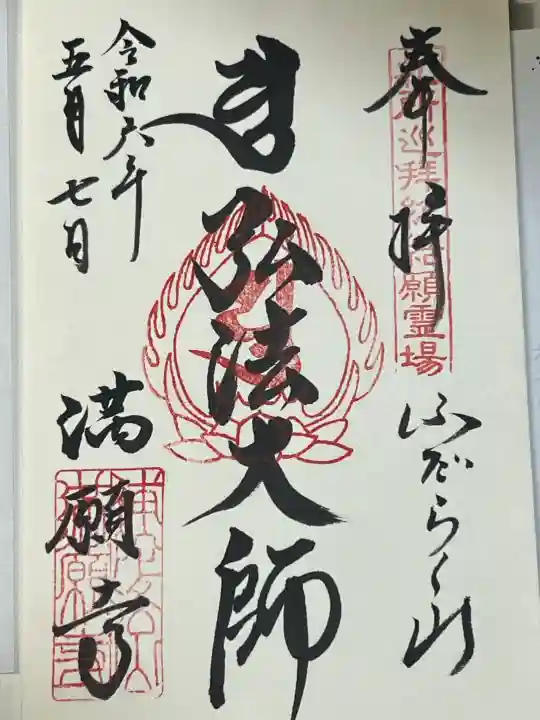 奉拝
巡拝総結願霊場
ふだらく山
弘法大師
令和六年
五月七日
満願寺